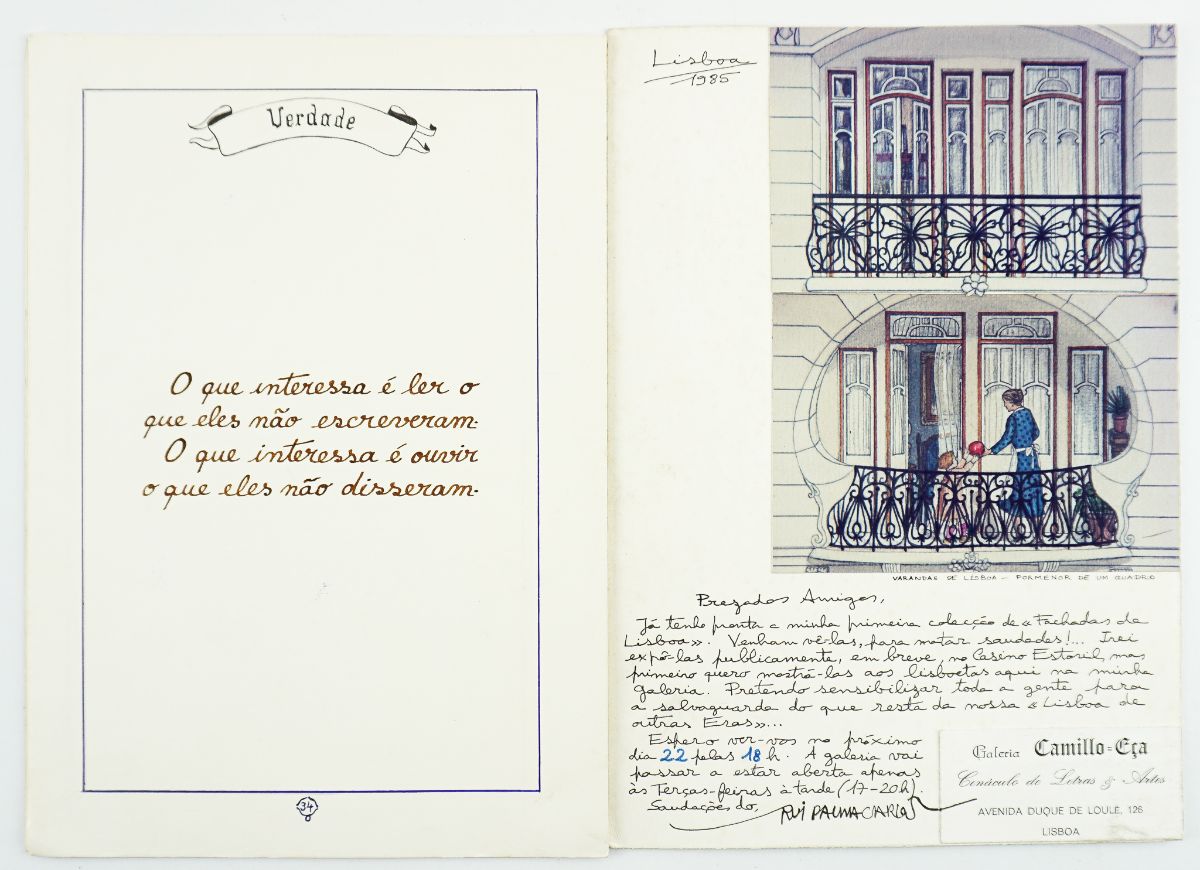 Verdade
O que interessa é ler o
que eles não escreveram.
O que interessa é ouvir
o que eles não disseram.
34
Lisboa
1985
VARANDAS DE LISBOA – PORMENOR DE UM QUADRO
Prezados Amigos,
Já tenho pronta a minha primeira colecção de «Fachadas de
Lisboa». Venham vê-las, para matar saudades!... Irei
expô-las publicamente, em breve, no Casino Estoril, mas
primeiro quero mostrá-las aos lisboetas aqui na minha
galeria. Pretendo sensibilizar toda a gente para
a salvaguarda do que resta da nossa «Lisboa de
outras Eras»...
Espero ver-vos no próximo
dia 22 pelas 18 h. A galeria vai
passar a estar aberta apenas
às Terças-feiras à tarde (17-20h).
Saudações do,
RUI PALMA CARLOS
Galeria Camillo-Eça
Cenáculo de Letras & Artes
AVENIDA DUQUE DE LOULÉ, 126
LISBOA